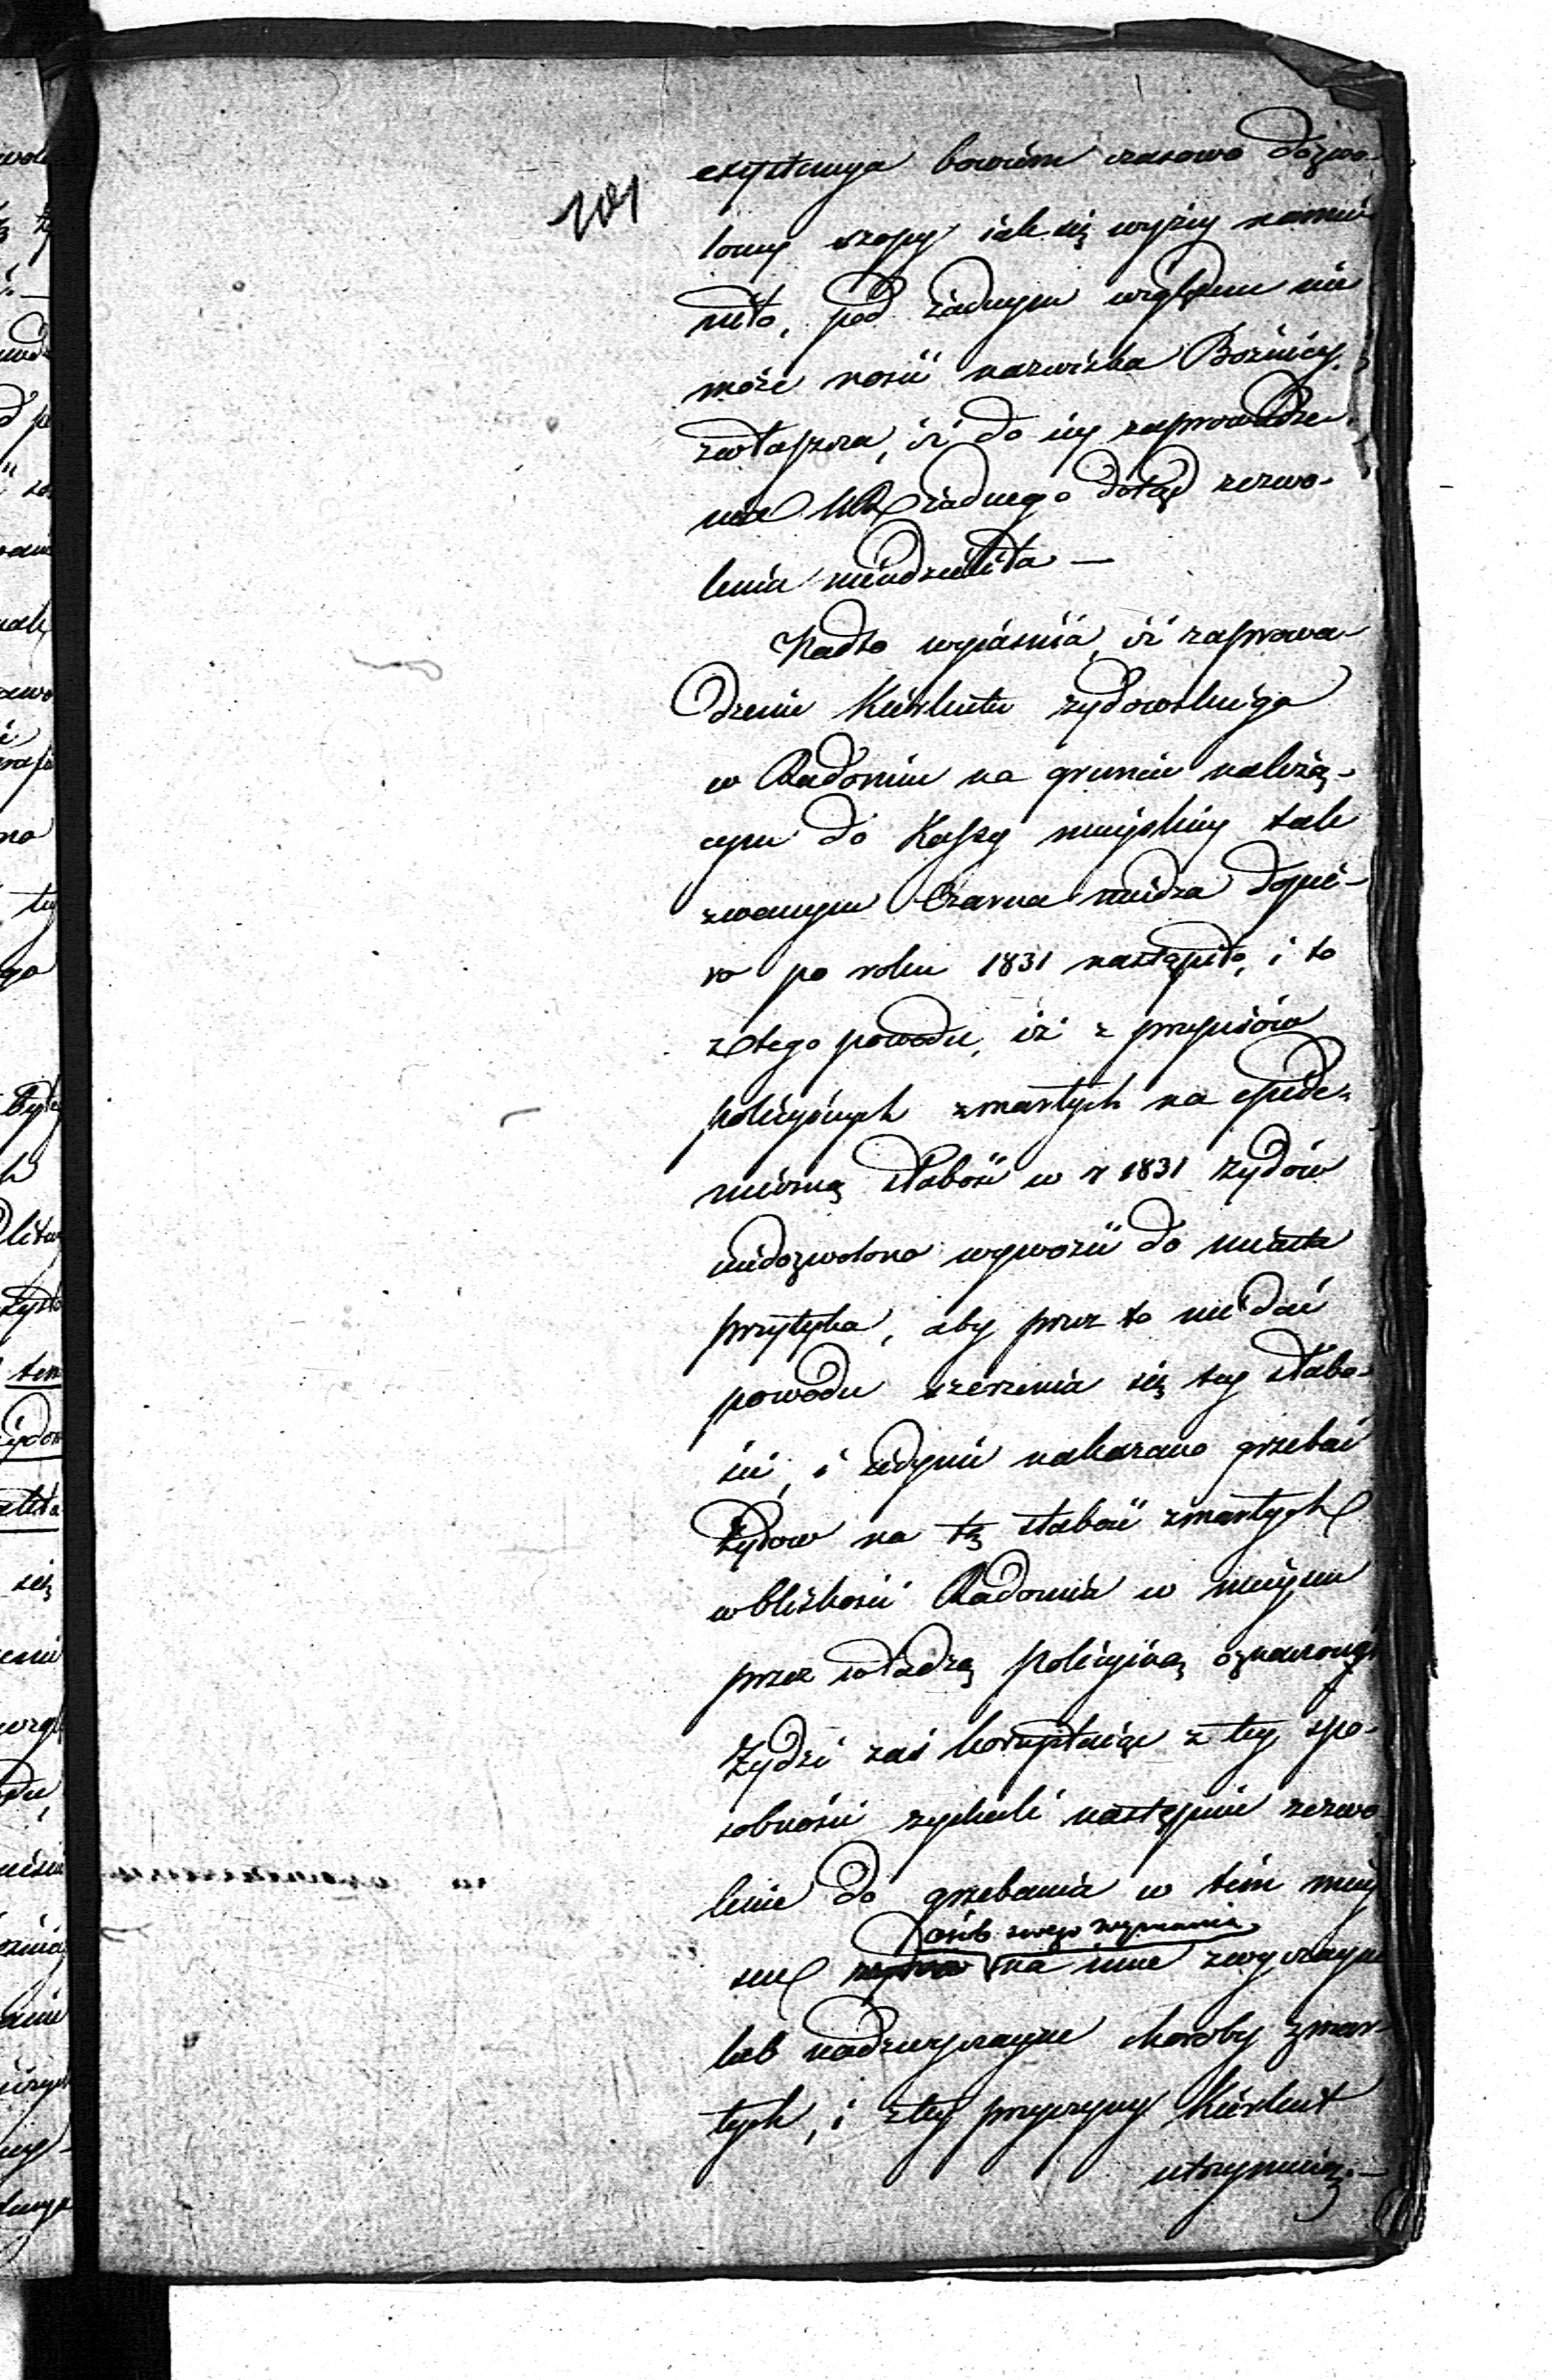 101
exystencya bowiem czasowo dozwo-
loney szopy iak się wyżey namie-
niło, pod żadnym względem nie
może nosić nazwiska Bożnicy,
zwłaszcza, iż do iey zaprowadze-
nia żadnego dotąd zezwo-
lenia nieudzieliła —
Nadto wyiaśnia, iż zaprowa-
dzenie Kierkutu żydowskiego
w Radomiu na gruncie należą-
cym do Kassy mieyskiey tak
zwanym Czarna miedza dopie-
ro po roku 1831 nastąpiło, i to
z tego powodu, iż z przepisów
policyinych zmarłych na epide-
miczną słabość w r 1831 żydów
niedozwolono wywozić do miasta
Przytyka, aby przez to nie dać
powodu szerzenia się tey słabo-
ści, i iedynie nakazano grzebać
Żydów na tę słabość zmarłych
w bliskości Radomia w mieyscu
przez władzę policyiną oznaczonym
Żydzi zaś korzystaiąc z tey spo-
sobności zyskali następnie zezwo
lenie do grzebania w tém miey
osób swego wyznania
scu na inne zwyczayne
lub nadzwyczayne choroby zmar-
łych, i z tey przyczyny Kierkut
utrzymuią. —